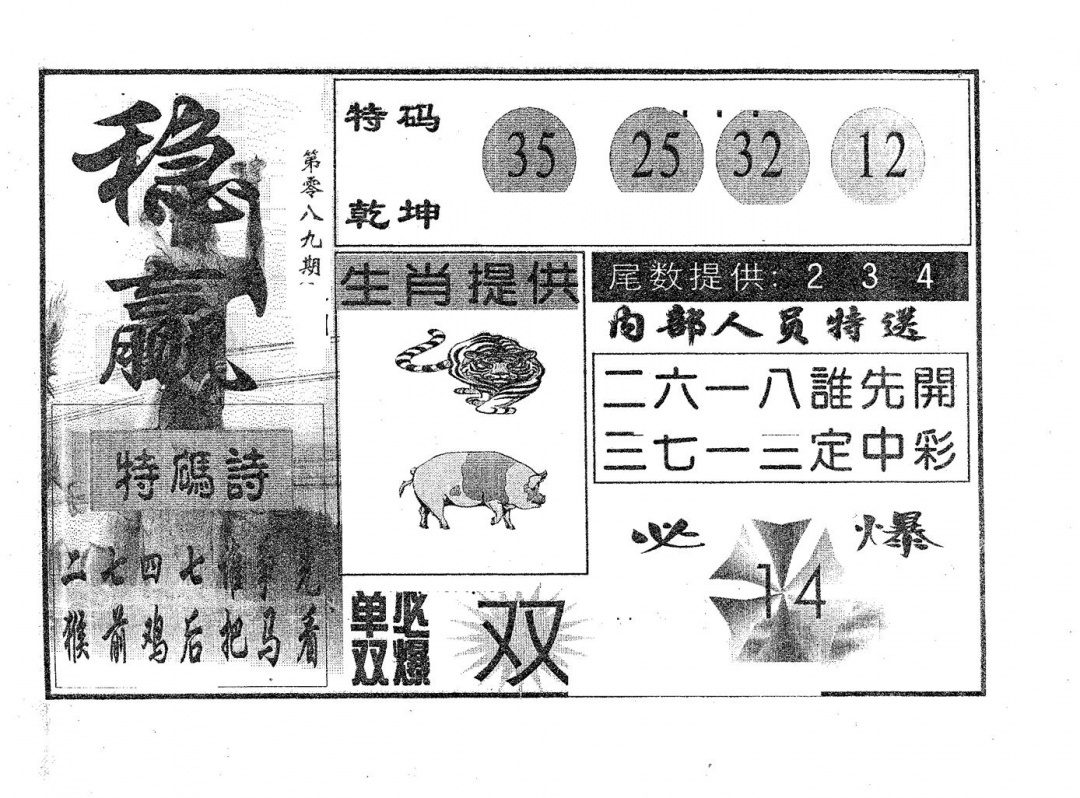 稳赢
第零八九期
特码诗
二七四七惟争先
猴前鸡后把马看
特码
乾坤
35 25 32 12
生肖提供
单双必爆
双
尾数提供: 2 3 4
内部人员特送
二六一八誰先開
三七一三定中彩
必爆
14